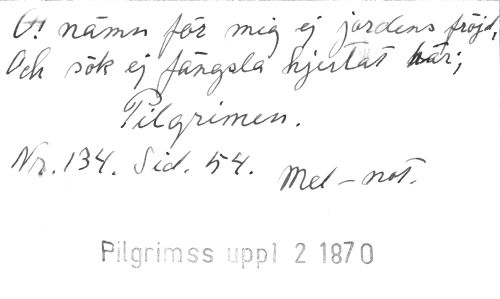 O! nämn för mig ej jordens fröjd,
Och sök ej fängsla hjertat här;
Pilgrimen.
Nr. 134. Sid. 54. Mel-not.
Pilgrimss uppl 2 1870